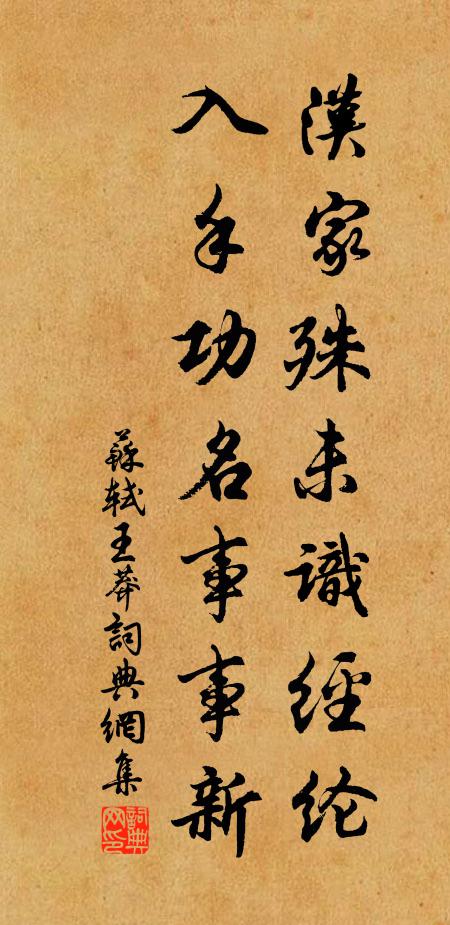 漢家殊未識經纶
入手功名事事新
蘇軾王莽詞典網集
詞典网印